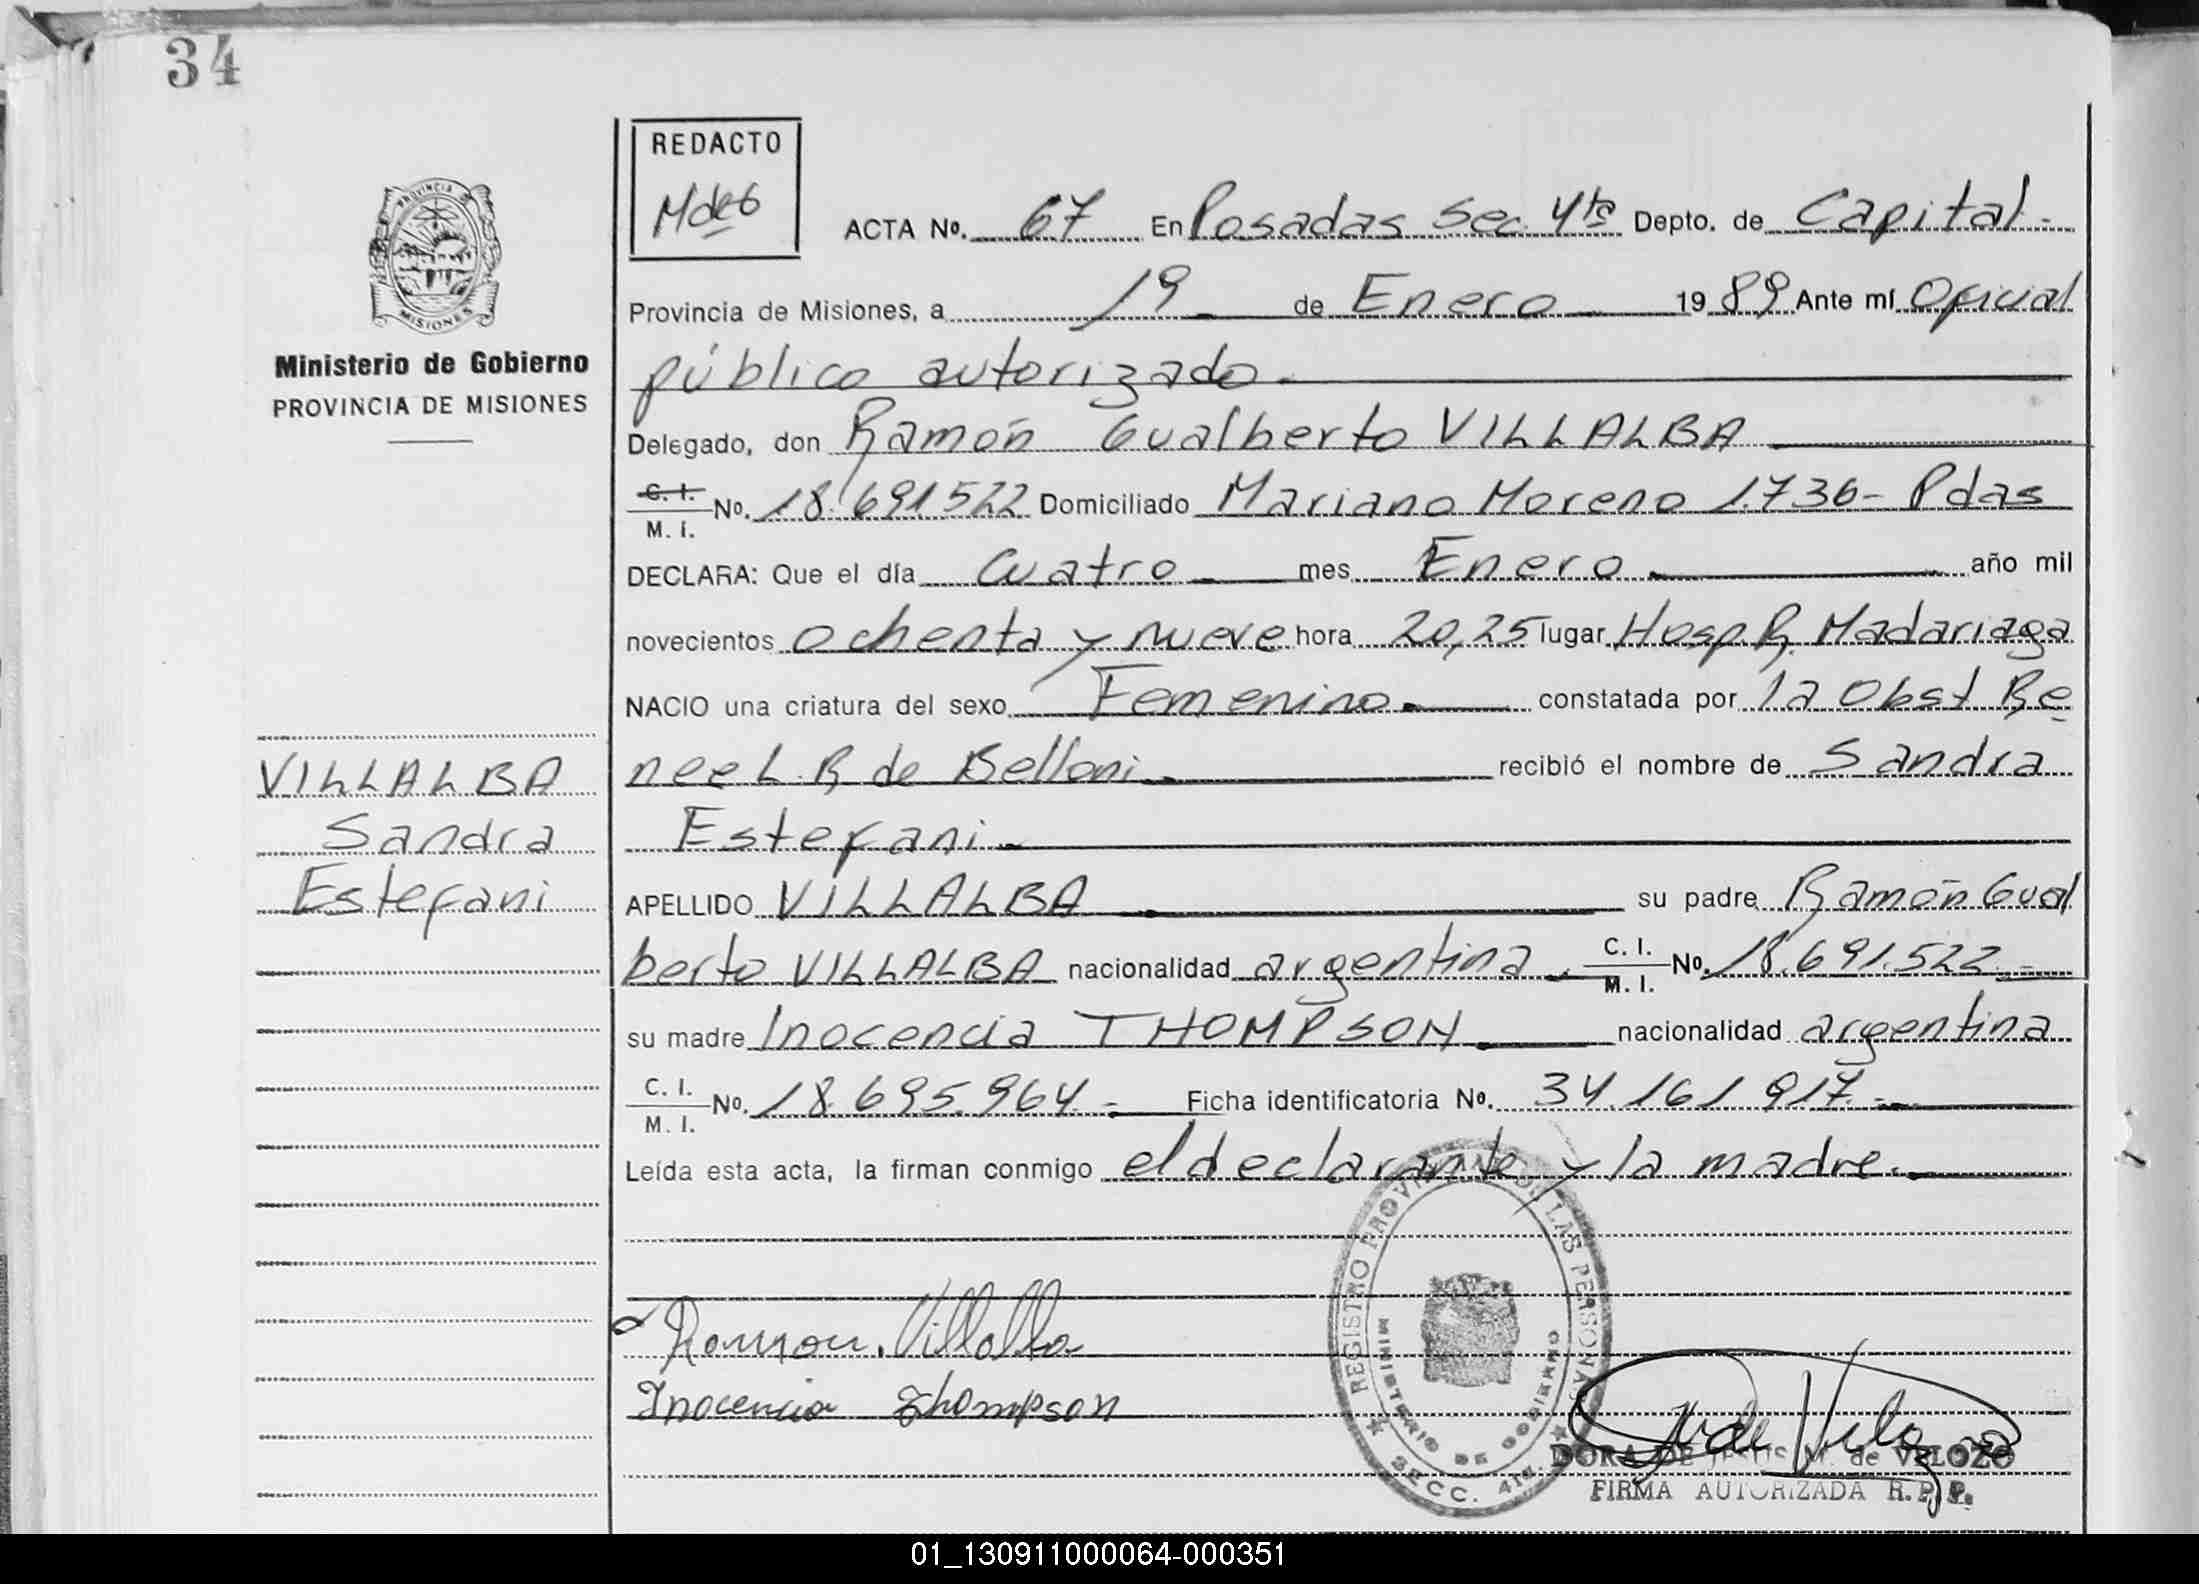 34
REDACTO
ACTA No. 67 En Posadas Sec. 4ta Depto. de Capital.-
Provincia de Misiones, a 19 de Enero 1989 Ante mí Oficial
público autorizado.
Delegado, don Ramón Gualberto VILLALBA
C. I. / M. I. No. 18.691.522 Domiciliado Mariano Moreno 1.736- Pdas
DECLARA: Que el día cuatro mes Enero año mil
novecientos ochenta y nueve hora 20,25 lugar Hosp R. Madariaga
NACIO una criatura del sexo Femenino.- constatada por la Obst Re
nee L. R de Belloni recibió el nombre de Sandra
Estefani
APELLIDO VILLALBA su padre Ramón Gual
berto VILLALBA nacionalidad argentina. C. I. / M. I. No. 18.691.522.-
su madre Inocencia THOMPSON nacionalidad argentina
C. I. / M. I. No. 18.695.964.- Ficha identificatoria No. 34.161.917.-
Leída esta acta, la firman conmigo el declarante y la madre.
PROVINCIA DE
MISIONES
Ministerio de Gobierno
PROVINCIA DE MISIONES
VILLALBA
Sandra
Estefani
Ramon. Villalba
Inocencia Thompson
REGISTRO PROVINCIAL DE LAS PERSONAS
MINISTERIO DE GOBIERNO
SECC. 4ta.
DORA DE JESUS M. de VELOZO
FIRMA AUTORIZADA R. P. P.
01_130911000064-000351